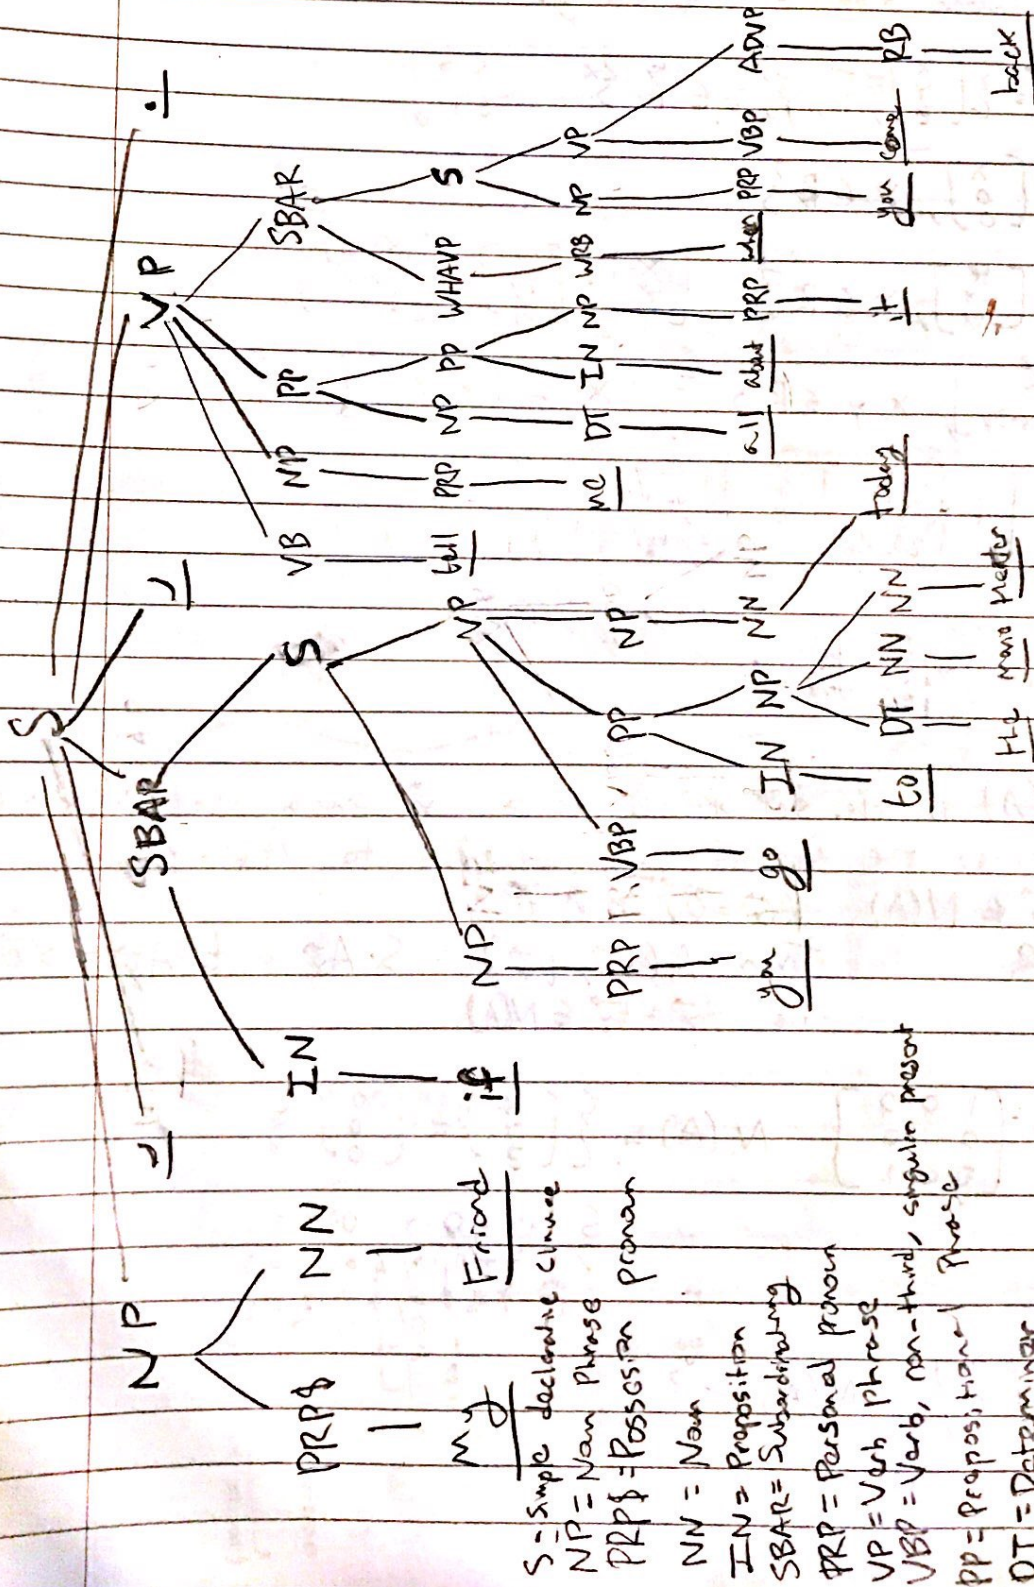 S
NP , SBAR , VP .
PRP$ NN IN S VB NP PP SBAR
My Friend if NP VP tell PRP NP PP WHAVP S
PRP VBP PP NP me DT IN WRB NP NP VP
you go IN NP NN all about PRP when PRP VBP ADVP
to DT NN NN today it you come RB
the theater back
S = Simple declarative clause
NP = Noun Phrase
PRP$ = Possesion pronoun
NN = Noun
IN = Preposition
SBAR = Subordinating
PRP = Personal pronoun
VP = Verb phrase
VBP = Verb, non-third, singular present
PP = Prepositional Phrase
DT = Determiner